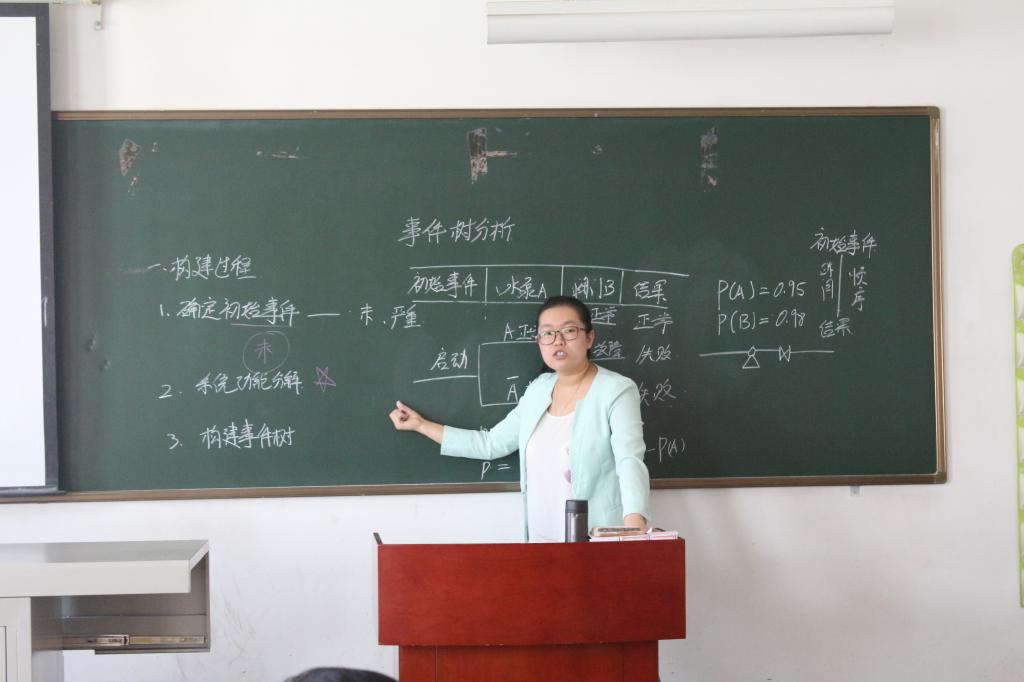 事件树分析
一、构建过程
1、确定初始事件 —— 未、严重
未
2、系统功能分解 ☆
3、构建事件树
初始事件 水泵A 阀门B 结果
A正 正常 正常
启动
故障 失败
Ā 失败
P =
-P(A)
P(A)=0.95
P(B)=0.98
初始事件
顺序
结果